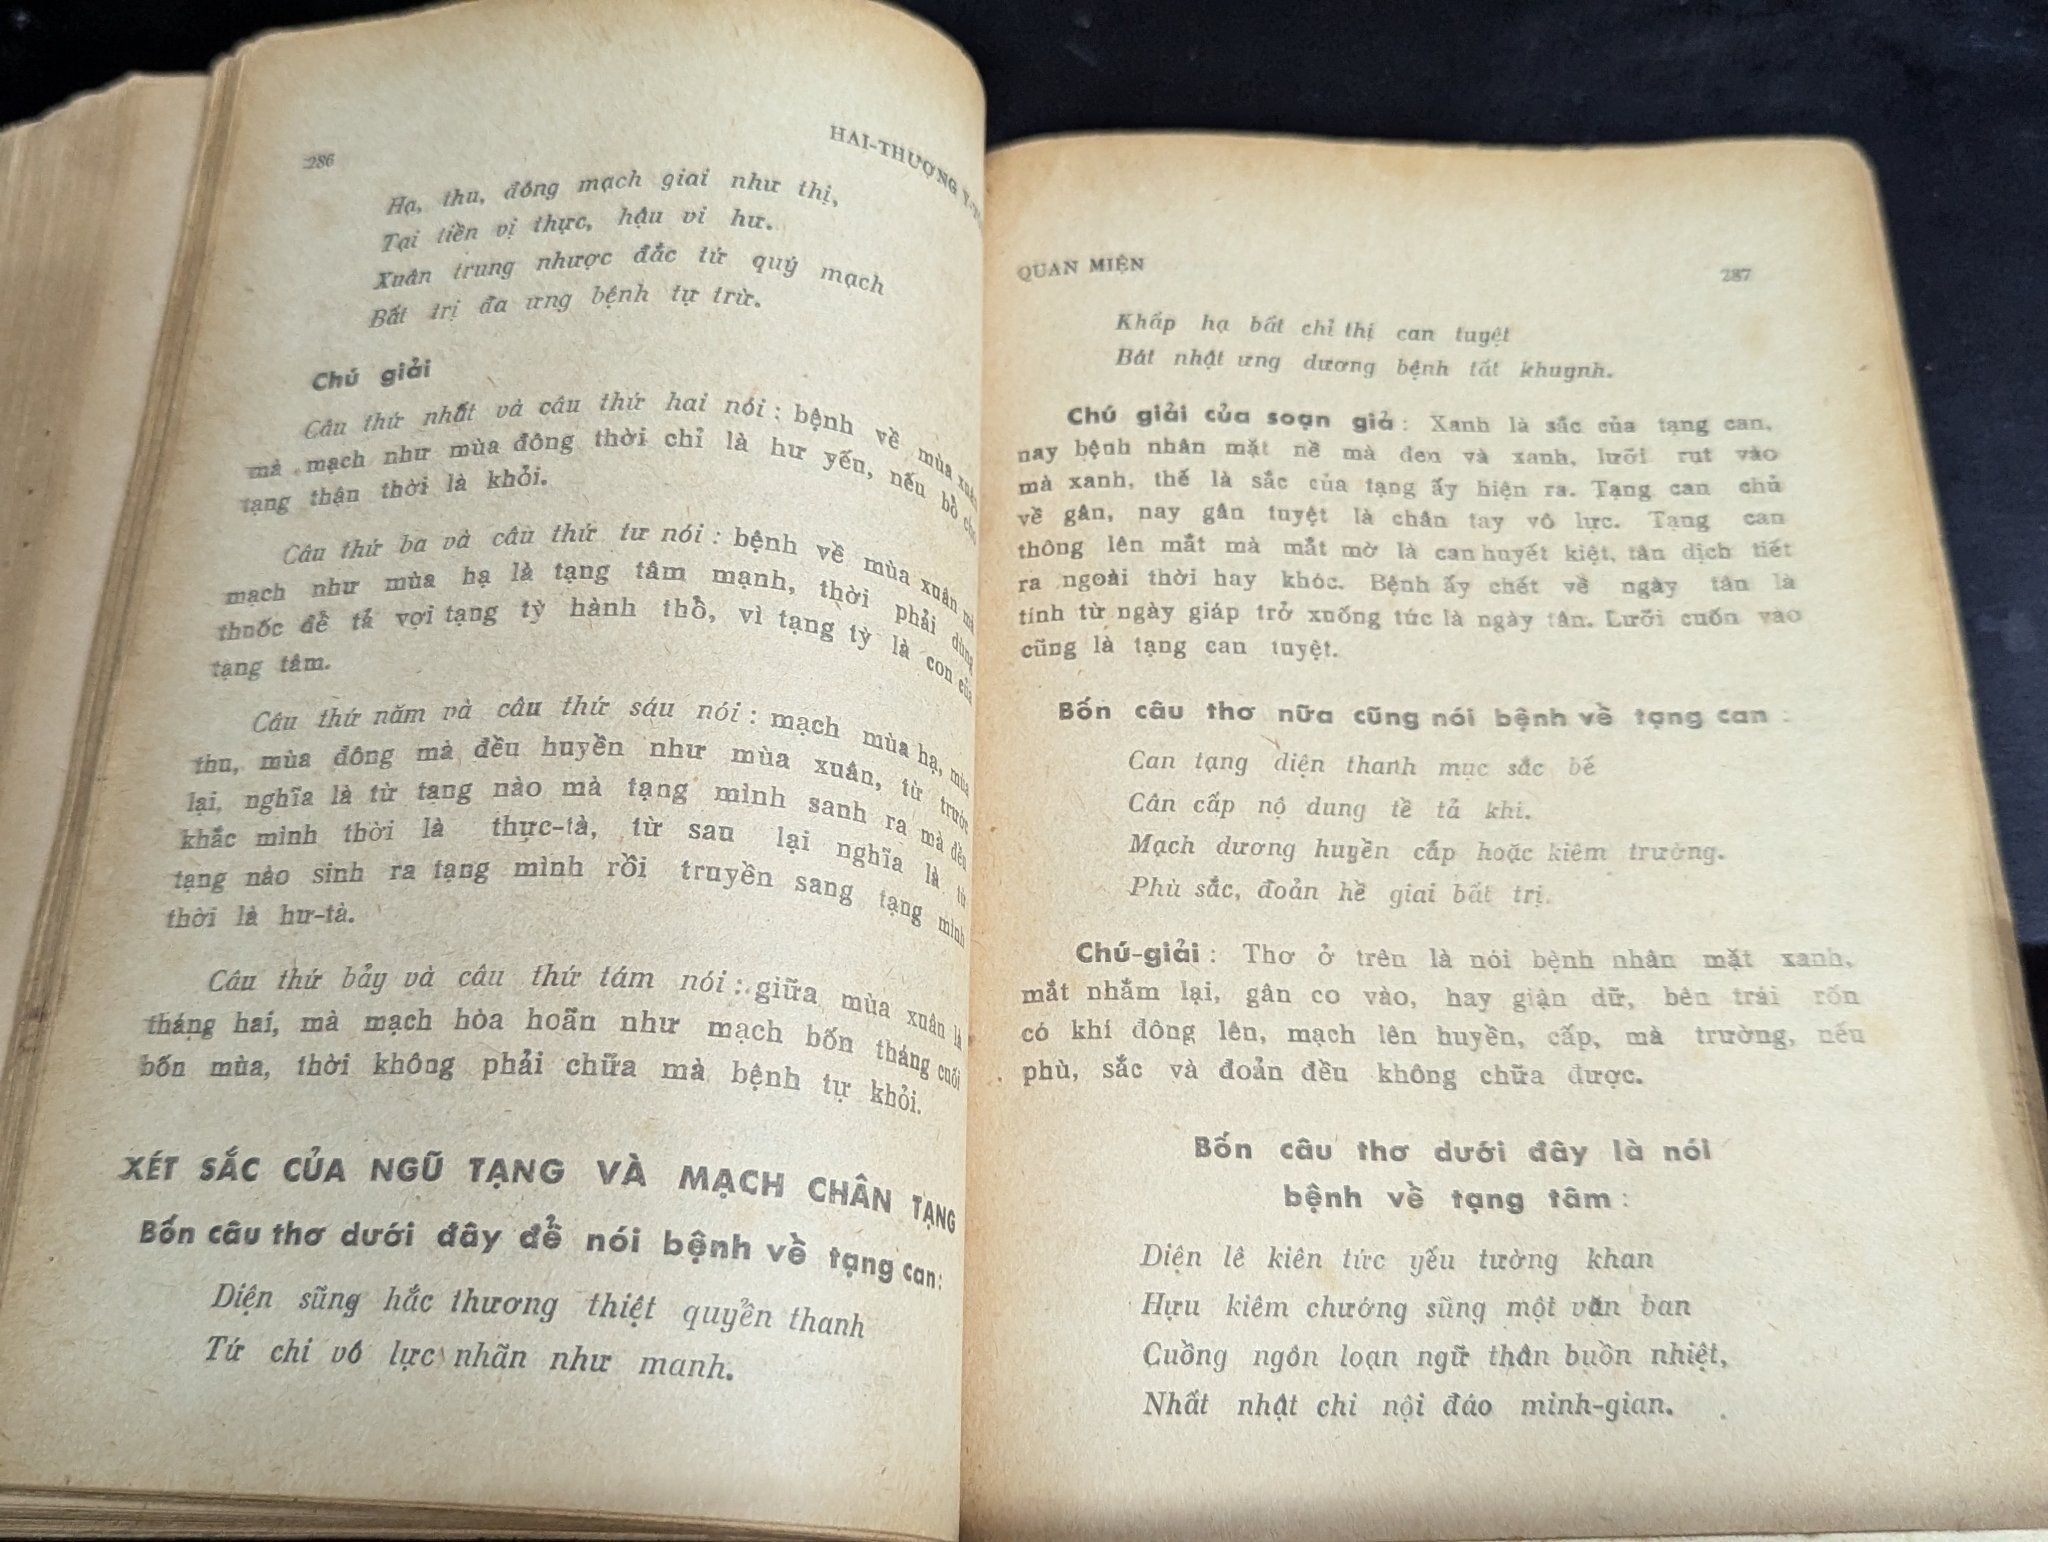 286
HAI-THƯỢNG Y-T
Hạ, thu, đông mạch giai như thị,
Tại tiền vị thực, hậu vi hư.
Xuân trung nhược đắc tứ quý mạch
Bất trị đa ưng bệnh tự trừ.
Chú giải
Câu thứ nhất và câu thứ hai nói : bệnh về mùa xuân
mà mạch như mùa đông thời chỉ là hư yếu, nếu bổ cho
tạng thận thời là khỏi.
Câu thứ ba và câu thứ tư nói : bệnh về mùa xuân mà
mạch như mùa hạ là tạng tâm mạnh, thời phải dùng
thuốc để tả vợi tạng tỳ hành thổ, vì tạng tỳ là con của
tạng tâm.
Câu thứ năm và câu thứ sáu nói : mạch mùa hạ, mùa
thu, mùa đông mà đều huyền như mùa xuân, từ trước
lại, nghĩa là từ tạng nào mà tạng mình sanh ra mà đều
khắc mình thời là thực-tà, từ sau lại nghĩa là từ
tạng nào sinh ra tạng mình rồi truyền sang tạng mình
thời là hư-tà.
Câu thứ bảy và câu thứ tám nói : giữa mùa xuân là
tháng hai, mà mạch hòa hoãn như mạch bốn tháng cuối
bốn mùa, thời không phải chữa mà bệnh tự khỏi.
XÉT SẮC CỦA NGŨ TẠNG VÀ MẠCH CHÂN TẠNG
Bốn câu thơ dưới đây để nói bệnh về tạng can:
Diện sũng hắc thương thiệt quyển thanh
Tứ chi vô lực nhãn như manh.
QUAN MIỆN
287
Khấp hạ bất chỉ thị can tuyệt
Bát nhật ưng dương bệnh tất khuynh.
Chú giải của soạn giả : Xanh là sắc của tạng can,
nay bệnh nhân mặt nề mà đen và xanh, lưỡi rụt vào
mà xanh, thế là sắc của tạng ấy hiện ra. Tạng can chủ
về gân, nay gân tuyệt là chân tay vô lực. Tạng can
thông lên mắt mà mắt mờ là can huyết kiệt, tân dịch tiết
ra ngoài thời hay khóc. Bệnh ấy chết về ngày tân là
tính từ ngày giáp trở xuống tức là ngày tân. Lưỡi cuốn vào
cũng là tạng can tuyệt.
Bốn câu thơ nữa cũng nói bệnh về tạng can :
Can tạng diện thanh mục sắc bế
Cân cấp nộ dung tề tả khi.
Mạch dương huyền cấp hoặc kiêm trường.
Phù sắc, đoản hề giai bất trị.
Chú-giải : Thơ ở trên là nói bệnh nhân mặt xanh,
mắt nhắm lại, gân co vào, hay giận dữ, bên trái rốn
có khí đông lên, mạch lên huyền, cấp, mà trường, nếu
phù, sắc và đoản đều không chữa được.
Bốn câu thơ dưới đây là nói
bệnh về tạng tâm :
Diện lê kiên tức yếu tường khan
Hựu kiêm chướng sũng một văn ban
Cuồng ngôn loạn ngữ thân buồn nhiệt,
Nhất nhật chi nội đáo minh-gian.